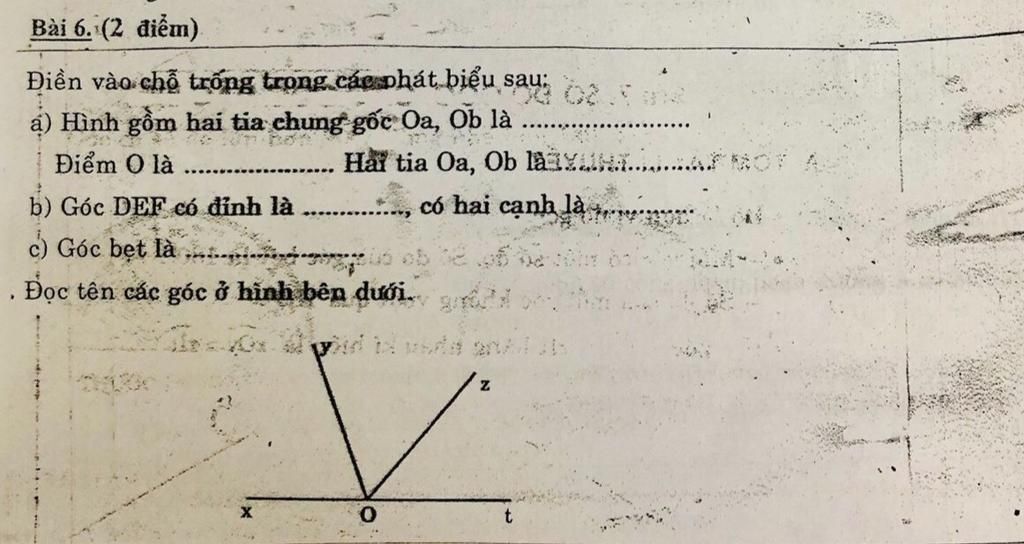 Bài 6. (2 điểm)
Điền vào chỗ trống trong các phát biểu sau:
a) Hình gồm hai tia chung gốc Oa, Ob là ........................
Điểm O là ...................... Hai tia Oa, Ob là........................
b) Góc DEF có đỉnh là .............., có hai cạnh là ..............
c) Góc bẹt là ..........................
. Đọc tên các góc ở hình bên dưới.
y
z
x O t